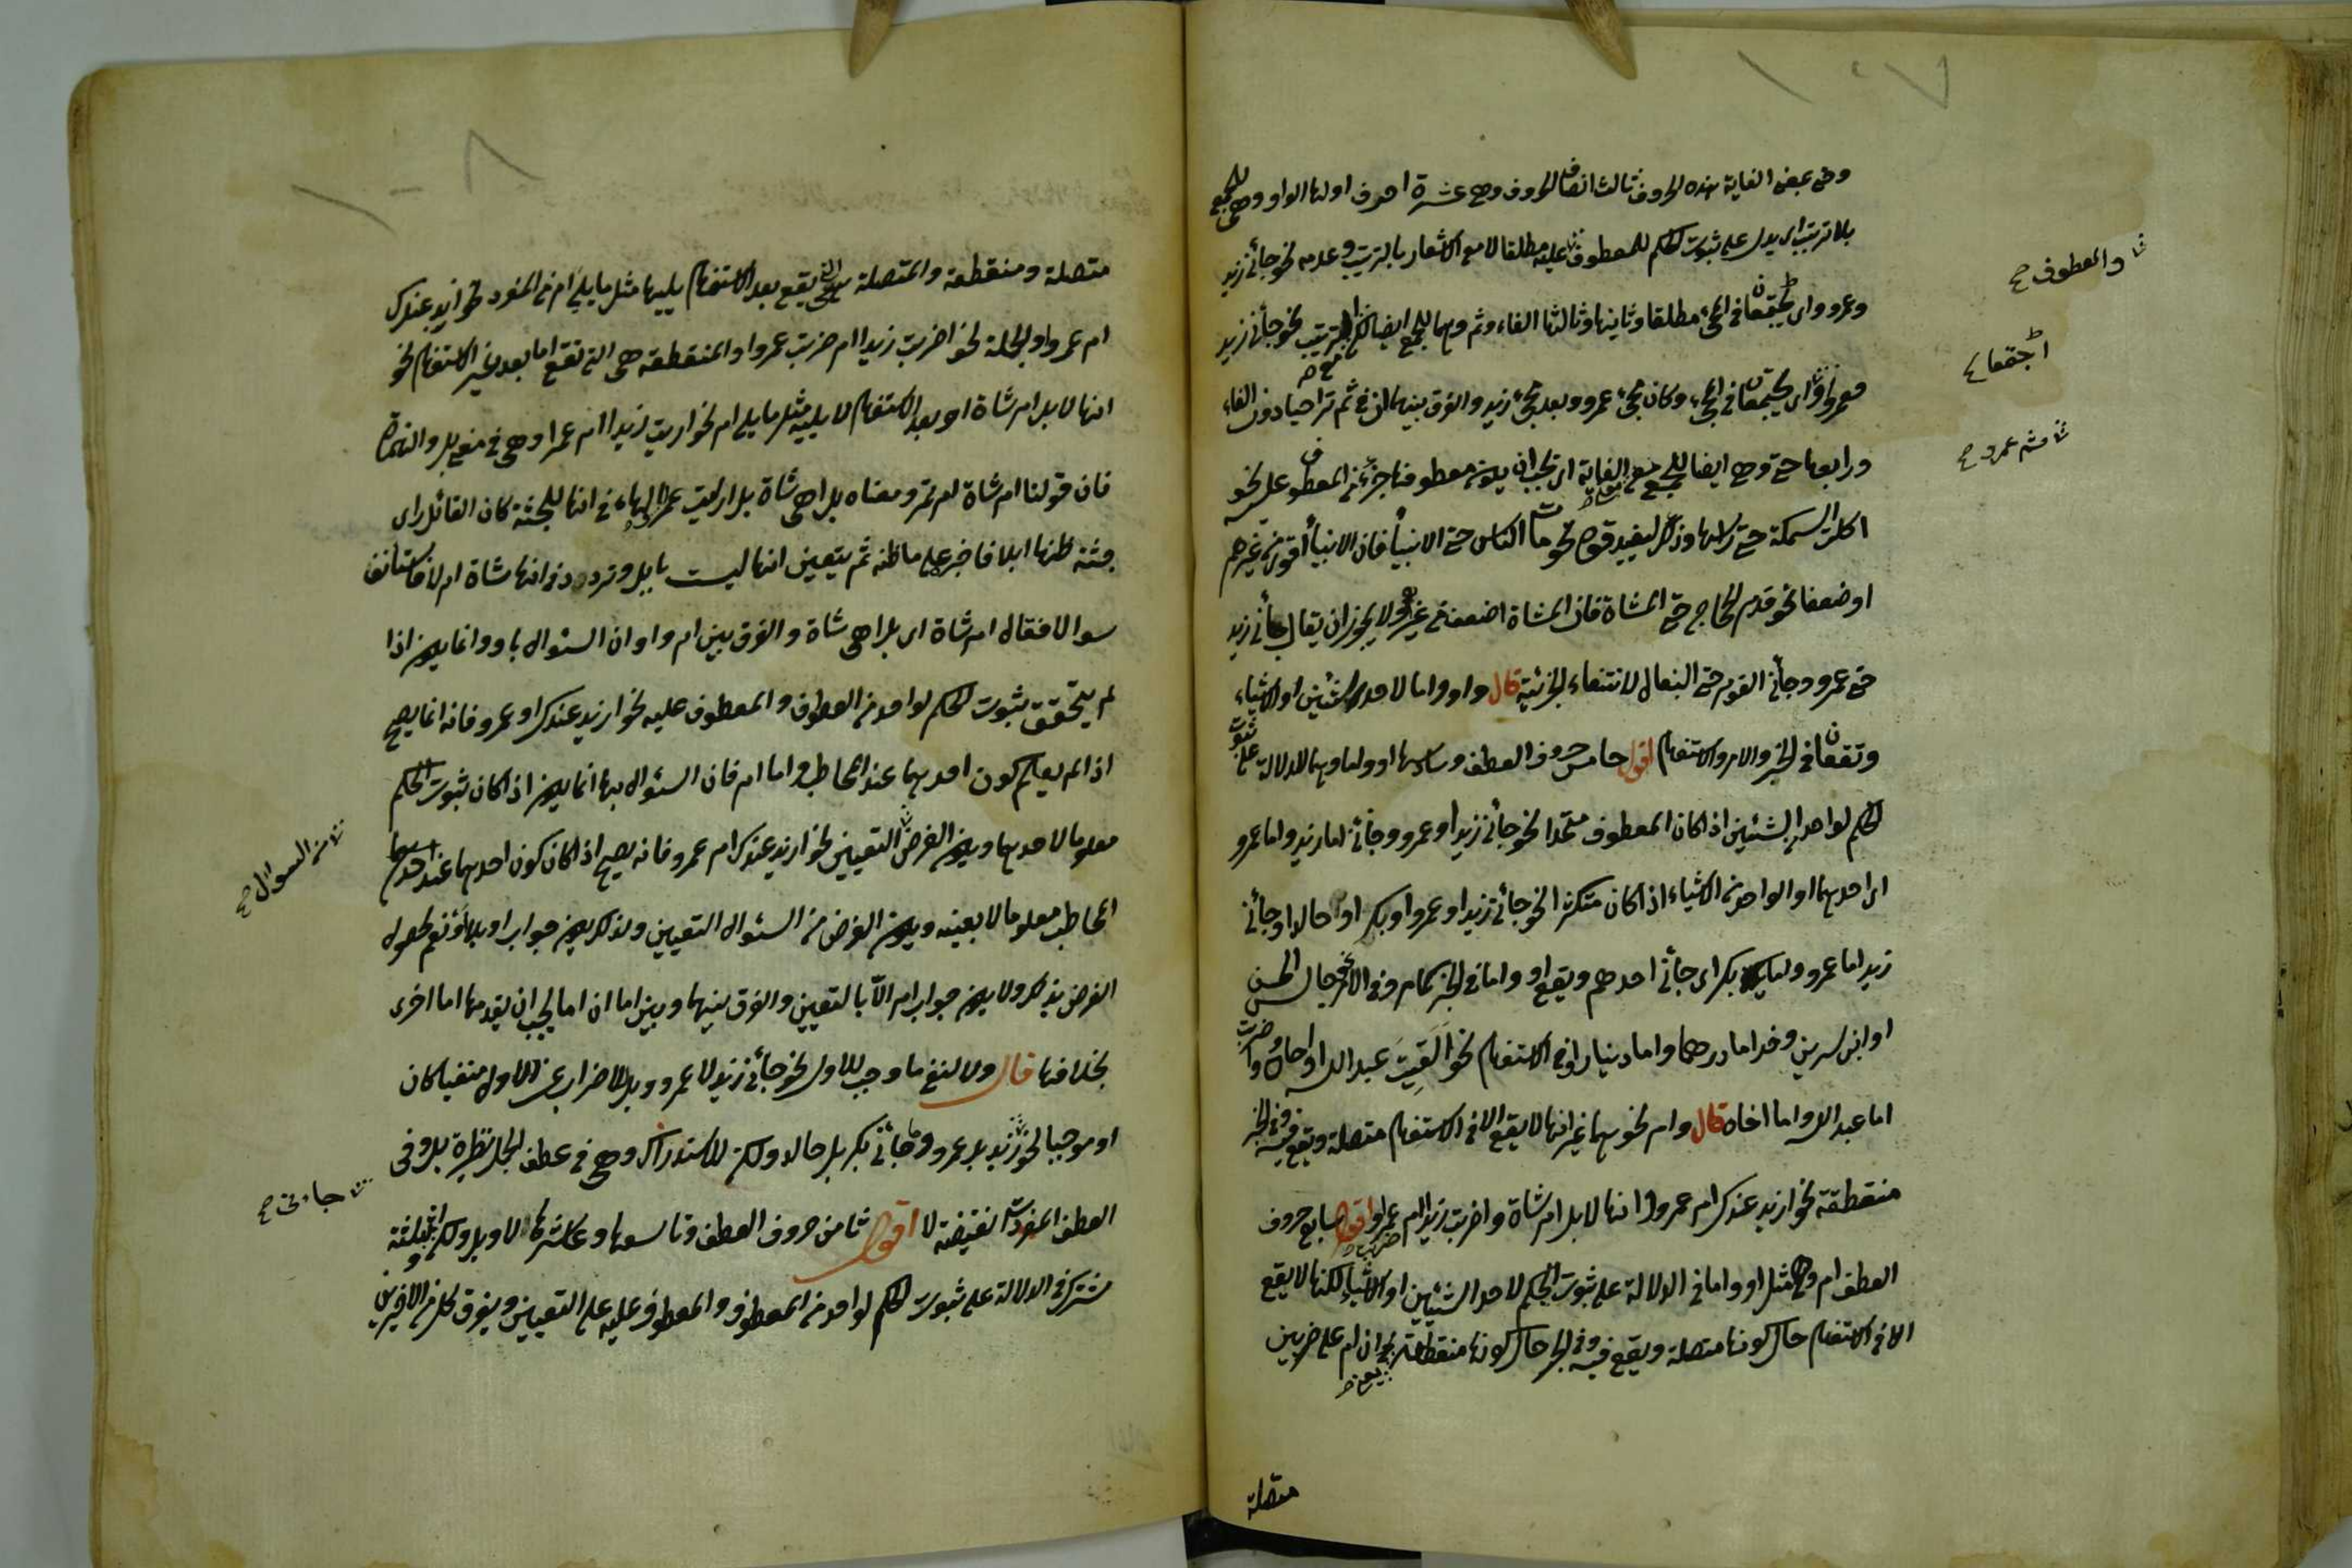 ١٠٧
وفي بعض الغاية هذه الحروف ثالث اصناف الحروف وهي عشرة احرف اولها الواو وهي للجمع
بلا ترتيب اى يدل على ثبوت الحكم للمعطوف عليه مطلقا لا مع الاشعار بالترتيب وعدمه نحو جائنى زيد
والمعطوف صح
وعمرو اى اجتمعا فى المجئ مطلقا وثانيها وثالثها الفاء وثم وهما للجمع ايضا لكن الترتيب نحو جائنى زيد
اجتمعا
فعمرو اى اجتمعا فى المجئ وكان مجئ عمرو بعد مجئ زيد والفرق بينهما ان فى ثم تراخيا دون الفاء
ثم عمرو صح
ورابعها حتى وهى ايضا للجمع مع الغاية اى يجب ان يكون معطوفها جزء من المعطوف عليه نحو
اكلت السمكة حتى راسها وذلك ليفيد قوة نحو مات الناس حتى الانبياء فان الانبياء اقوى من غيرهم
او ضعفا نحو قدم الحاج حتى المشاة فان المشاة اضعف من غيرهم ولا يجوز ان يقال جائنى زيد
حتى عمرو وجائنى القوم حتى البغال لانتفاء الجزئية قال واو واما لاحد الشئين او الاشياء
وتقعان فى الخبر والامر والاستفهام اقول خامس حروف العطف وسادسها او واما وهما للدلالة على ثبوت
الحكم لواحد الشئين اذا كان المعطوف متحدا نحو جائنى زيد او عمرو وجائنى اما زيد واما عمرو
اى احدهما او الواحد من الاشياء اذا كان متكثرا نحو جائنى زيد او عمرو او بكر او خالد او جائنى
زيد اما عمرو واما بكر اى جائنى احدهم ويقع او واما فى الخبر كما مر وفى الامر نحو جالس الحسن
او ابن سيرين وخذ اما درهما واما دينارا وفى الاستفهام نحو القيت عبد الله او اخاه واضربت
اما عبد الله واما اخاه قال وام نحوهما غير انها لا يقع الا فى الاستفهام متصلة ويقع فيه وفى الخبر
منقطعة نحو ازيد عندك ام عمرو وانها لابل ام شاة واضربت زيدا ام عمرا اقول سابع حروف
العطف ام وهى مثل او واما فى الدلالة على ثبوت الحكم لاحد الشئين او الاشياء لكنها لا يقع
الا فى الاستفهام حال كونها متصلة ويقع فيه وفى الخبر حال كونها منقطعة يعنى ان ام على ضربين
متصلة
١٠٨
متصلة ومنقطعة والمتصلة هى التى يقع بعد الاستفهام يليها مثل ما يلى ام فى المفرد نحو ازيد عندك
ام عمرو او الجملة نحو اضربت زيدا ام ضربت عمروا والمنقطعة هى التى تقع اما بعد غير الاستفهام نحو
انها لابل ام شاة او بعد الاستفهام لا يليه مثل ما يلى ام نحو اريت زيدا ام عمرا وهى فى معنى بل والهمزة
فان قولنا ام شاة لم تر ومعناه بل اهى شاة بل اريت عمرا الهاء فى انها للجثة كان القائل راى
جثة ظنها ابلا فاخبر على ما ظنه ثم يتعين انها ليست بابل وتردد فى انها شاة ام لا فاستانف
سوالا فقال ام شاة اى بل اهى شاة والفرق بين ام واو ان السئوال باو وانما يكون اذا
لم يتحقق ثبوت الحكم لواحد من المعطوف والمعطوف عليه نحو ازيد عندك او عمرو فانه انما يصح
اذا لم يعلم كون احدهما عند المخاطب واما ام فان السئوال بها انما يكون اذا كان ثبوت الحكم
معلوما لاحدهما ويكون الغرض التعيين نحو ازيد عندك ام عمرو فانه يصح اذا كان كون احدهما عند
من السوال صح
المخاطب معلوما لا بعينه ويكون الغرض من السئوال التعيين ولذلك يكون جواب او بلا ونعم لحصول
الغرض بذلك ولا يكون جواب ام الا بالتعيين والفرق بينها وبين اما ان اما يجب ان يقدمها اما اخرى
بخلافها قال ولا لنفى ما وجب للاول نحو جائنى زيد لا عمرو وبل للاضراب عن الاول منفيا كان
او موجبا نحو زيد بل عمرو وما جائنى بكر بل خالد ولكن للاستدراك وهى فى عطف الجمل نظيرة بل وفى
جاءنى صح
العطف المفردات نقيضة لا اقول ثامن حروف العطف وتاسعها وعاشرها لا وبل ولكن الثلثة
مشترك فى الدلالة على ثبوت الحكم لواحد من المعطوف والمعطوف عليه على التعيين ويفرق كل من الاخيرين